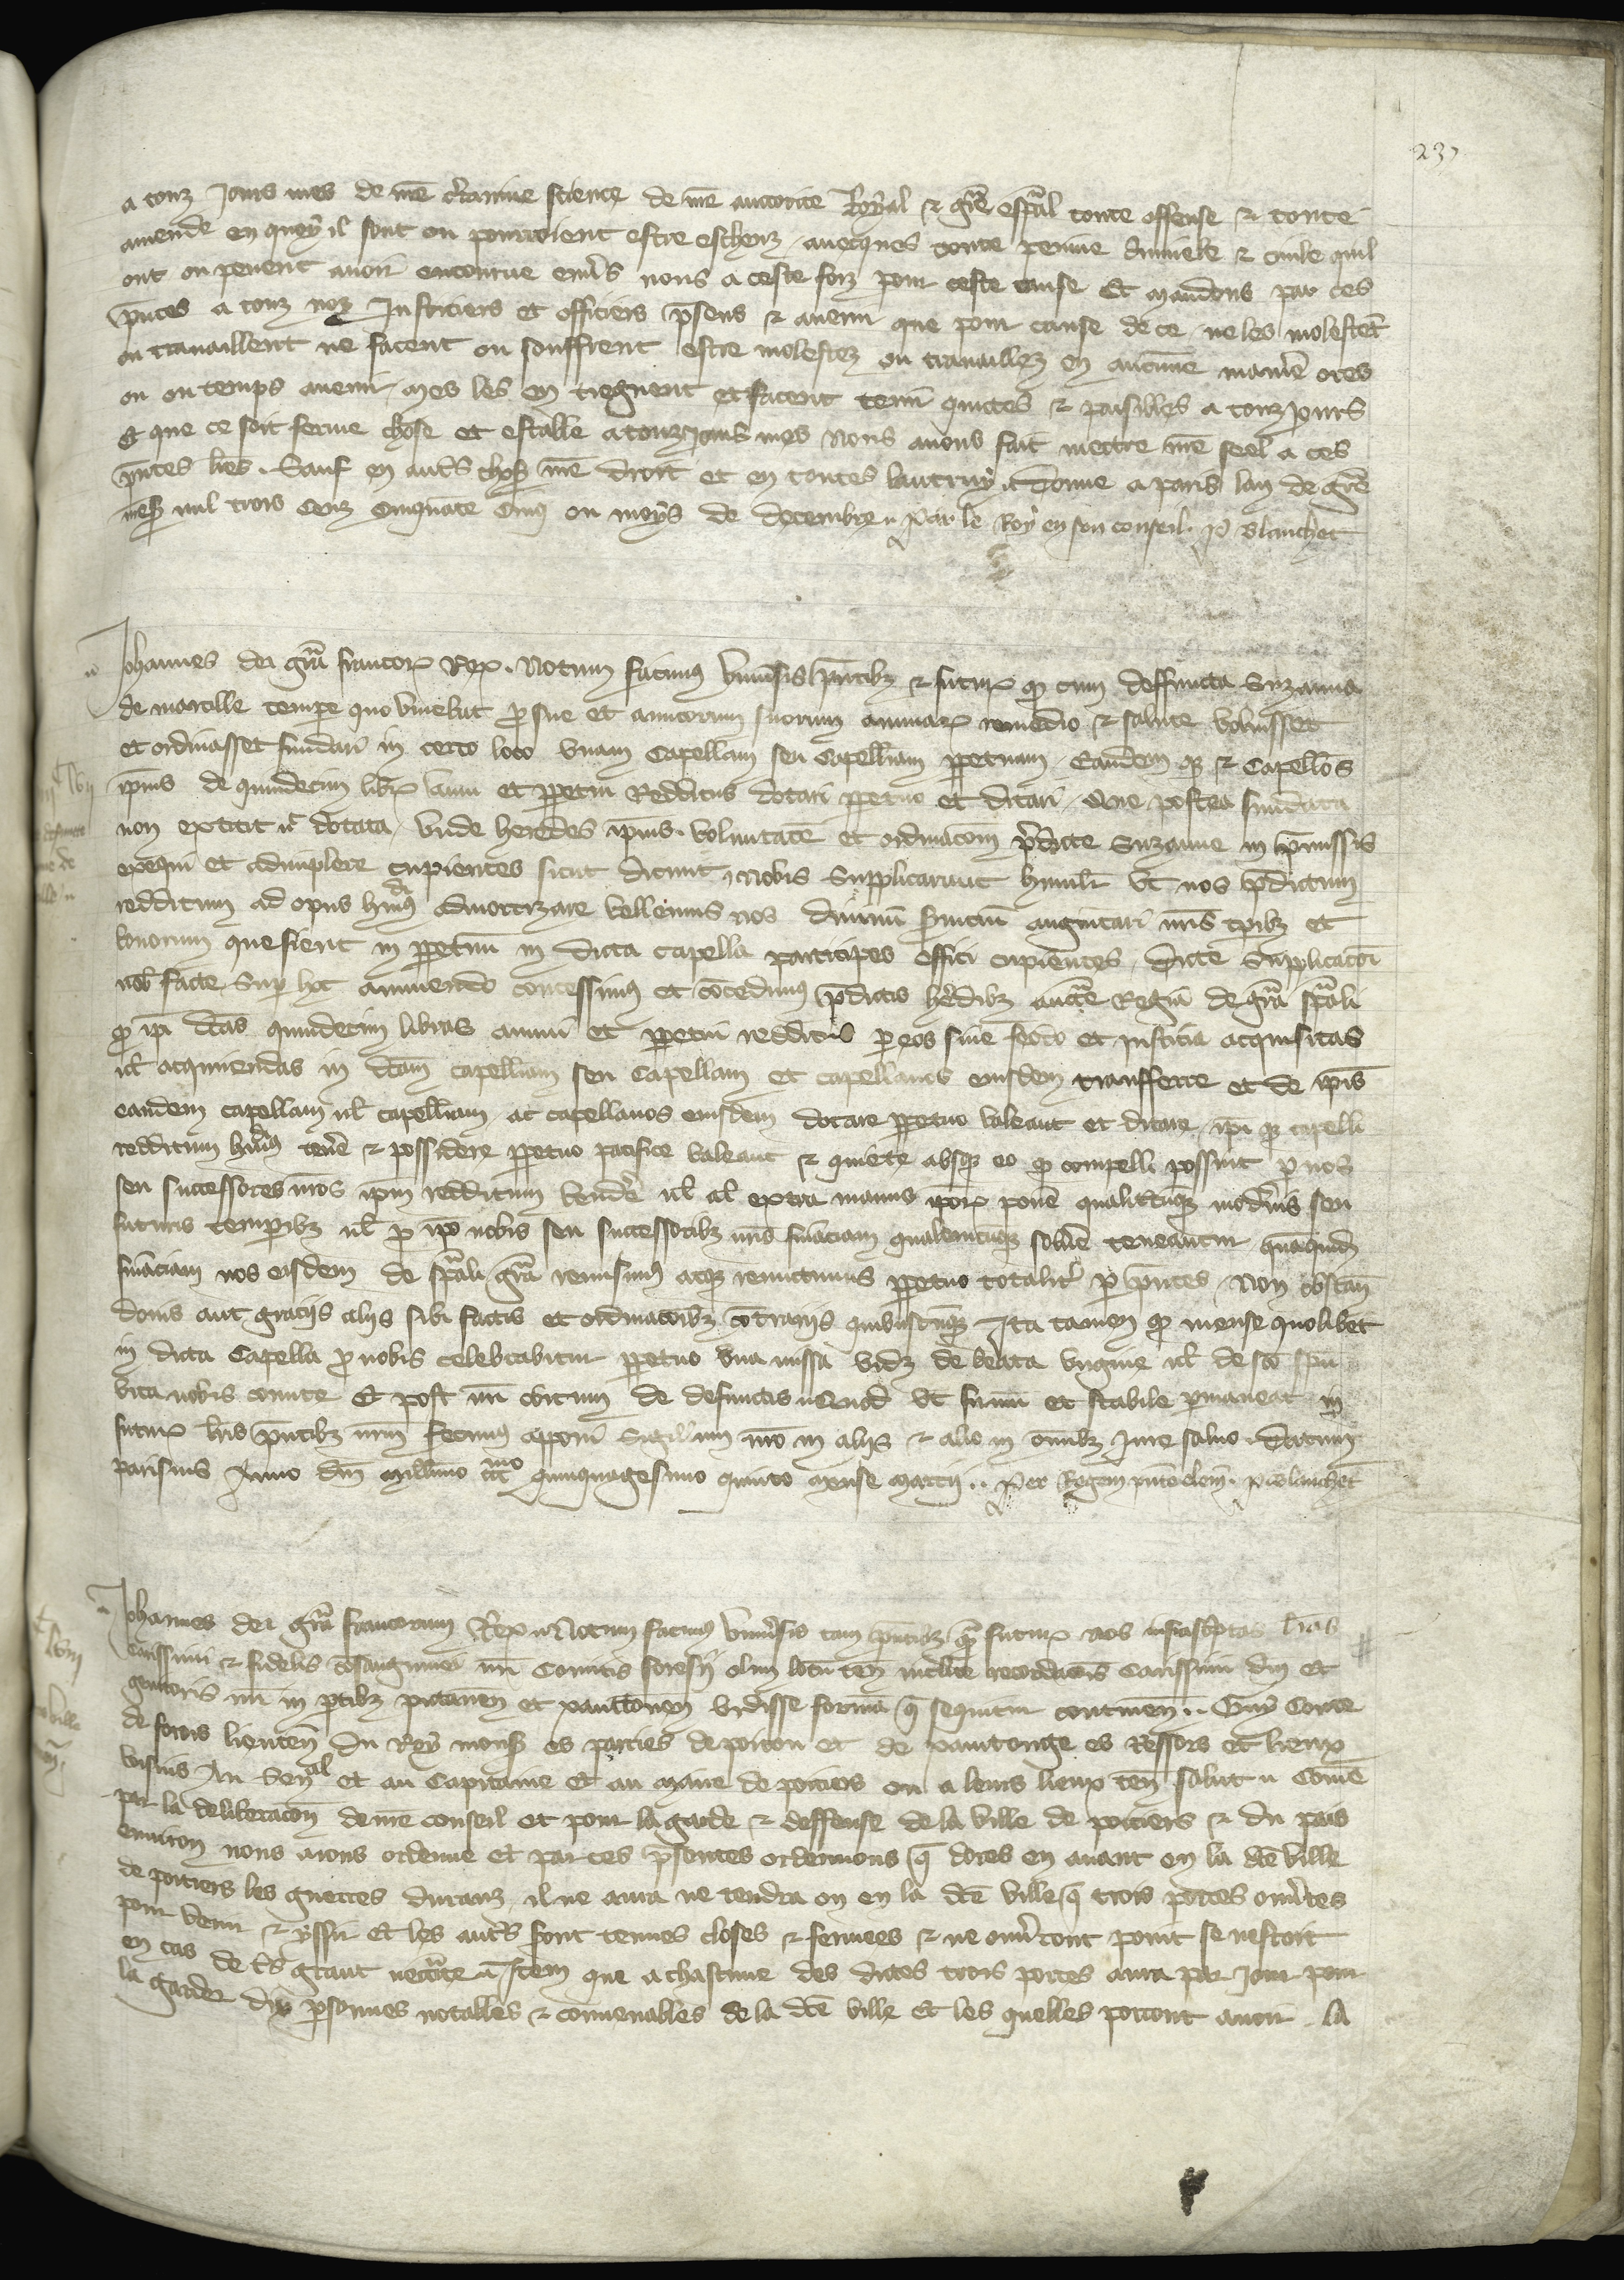 237
a touz jours mes de nre certainne science de nre auctorite Royal & grace espal toute offense & toute
amende en quoy il sont ou pourroient estre escheuz avecques toute peinne criminele & civile quil
ont ou pevent avoir encourue envers nous a ceste foiz pour ceste cause Et mandons par ces
pntes a touz noz Justiciers et officiers presens & avenir que pour cause de ce ne les molestent
ou travaillent ne facent ou souffrent estre molestez ou travaillez en aucune maniere ores
ou ou temps avenir mes les en tiegnent et facent tenir quictes & paisibles a touz jours
Et que ce soit ferme chose et estable a touz jours mes Nous avons fait mectre nre seel a ces
pntes lres. Sauf en autres choses nre droit et en toutes lautruy. Donne a paris lan de grace
mil trois cenz cinquate cinq ou moys de decembre. Par le Roy en son conseil. P Blanchet
Johannes dei gra francorum Rex. Notum facimus universis pntibz & futuris quod cum deffuncta Suzanna
de marcille tempore quo vivebat pro sue et amicorum suorum animarum remedio & salute voluisset
et ordinasset fundari in certo loco unam Capellam seu Capellaniam perpetuam Eandemque & Capellanos
ipius de quindecim libris annui et perpetui Redditus dotari perpetuo et ditari Que postea fundata
non extitit nec dotata, unde heredes ipius voluntatem et ordinacom predicte Suzanne in premissis
exequi et adimplere cupientes sicut dicunt, Nobis Supplicarunt humilr ut nos predictum
redditum ad opus hujus admortizare vellemus nos divinum servicium augmentari nris tpibz et
bonorum que fient in perpetuum in dicta capella participes effici cupientes, dicte Supplicacoi
nobis facte Super hoc annuendo concessimus et concedimus predictis heredibz auctoritate Regia de gra spali
quod ipi dictas quindecim libras annui et perpetui redditus per eos sine feodo et justicia acquisitas
vel acquirendas in dictam capellaniam seu Capellam et capellanos eiusdem transferre et de ipis
eandem capellam vel capellaniam ac capellanos eiusdem dotare perpetuo valeant et ditare, ipi que capellani
redditum hujusmodi tenere & possidere perpetuo pacifice valeant & quiete absque eo quod compelli possint per nos
seu successores nros ipm redditum vendere vel al extra manus ipor ponere qualitercunque modernis seu
futuris temporibz vel pro ipo nobis seu successoribz nris financiam qualemcunque solvere teneantur quamquidem
financiam nos eisdem de spali gra remisimus atque remittimus perpetuo totaliter per pntes, Non obstan
donis aut graciis aliis sibi factis et ordinacoibz contrariis quibuscunque Ita tamen quod mense quolibet
in dicta Capella pro nobis celebrabitur perpetuo una missa videlicet de beata virgine vel de sco spu
vita nobis comite Et post nrm obitum de defunctis. Quod ut firmum et stabile permaneat in
futurum lris pntibz nrm fecimus apponi Sigillum nro in aliis & alieno in omnibz jure salvo. Datum
parisius Anno dni millesimo ccc mo quinquagesimo quinto mense marcii.. Per Regem P Blanchet
Johannes dei gra francorum Rex. Notum facimus universis tam pntibz quam futuris nos infrascriptas lras
carissimi & fidelis consanguinei nri Comitis foresii olim locum ten inclite recordacois Carissimi dni et
genitoris nri in partibz pictaven et xancton vidisse formam que sequitur continen.. Guy Conte
de forois lieuten du Roy monsr es parties de poitou et de xaintonge es ressors et lieux
voisins Au Senal et au Capitaine Et au maire de poitiers ou a leurs lieux ten salut. Come
par la deliberacon de nre conseil et pour la garde & deffense de la ville de poitiers & du pais
environ nous avons ordenne et par ces presentes ordennons que dores en avant en la dte ville
de poitiers les guerres duranz, il ne aura ne tendra on en la dte ville que trois portes ouvertes
pour venir & yssir et les autres seront tenues closes & fermees & ne ouvreront point se nestoit
en cas de tres grant necessite. Item que a chascune des dictes trois portes aura par jour pour
la garder dix personnes notables & convenables de la dte ville Et les quelles porront avoir la